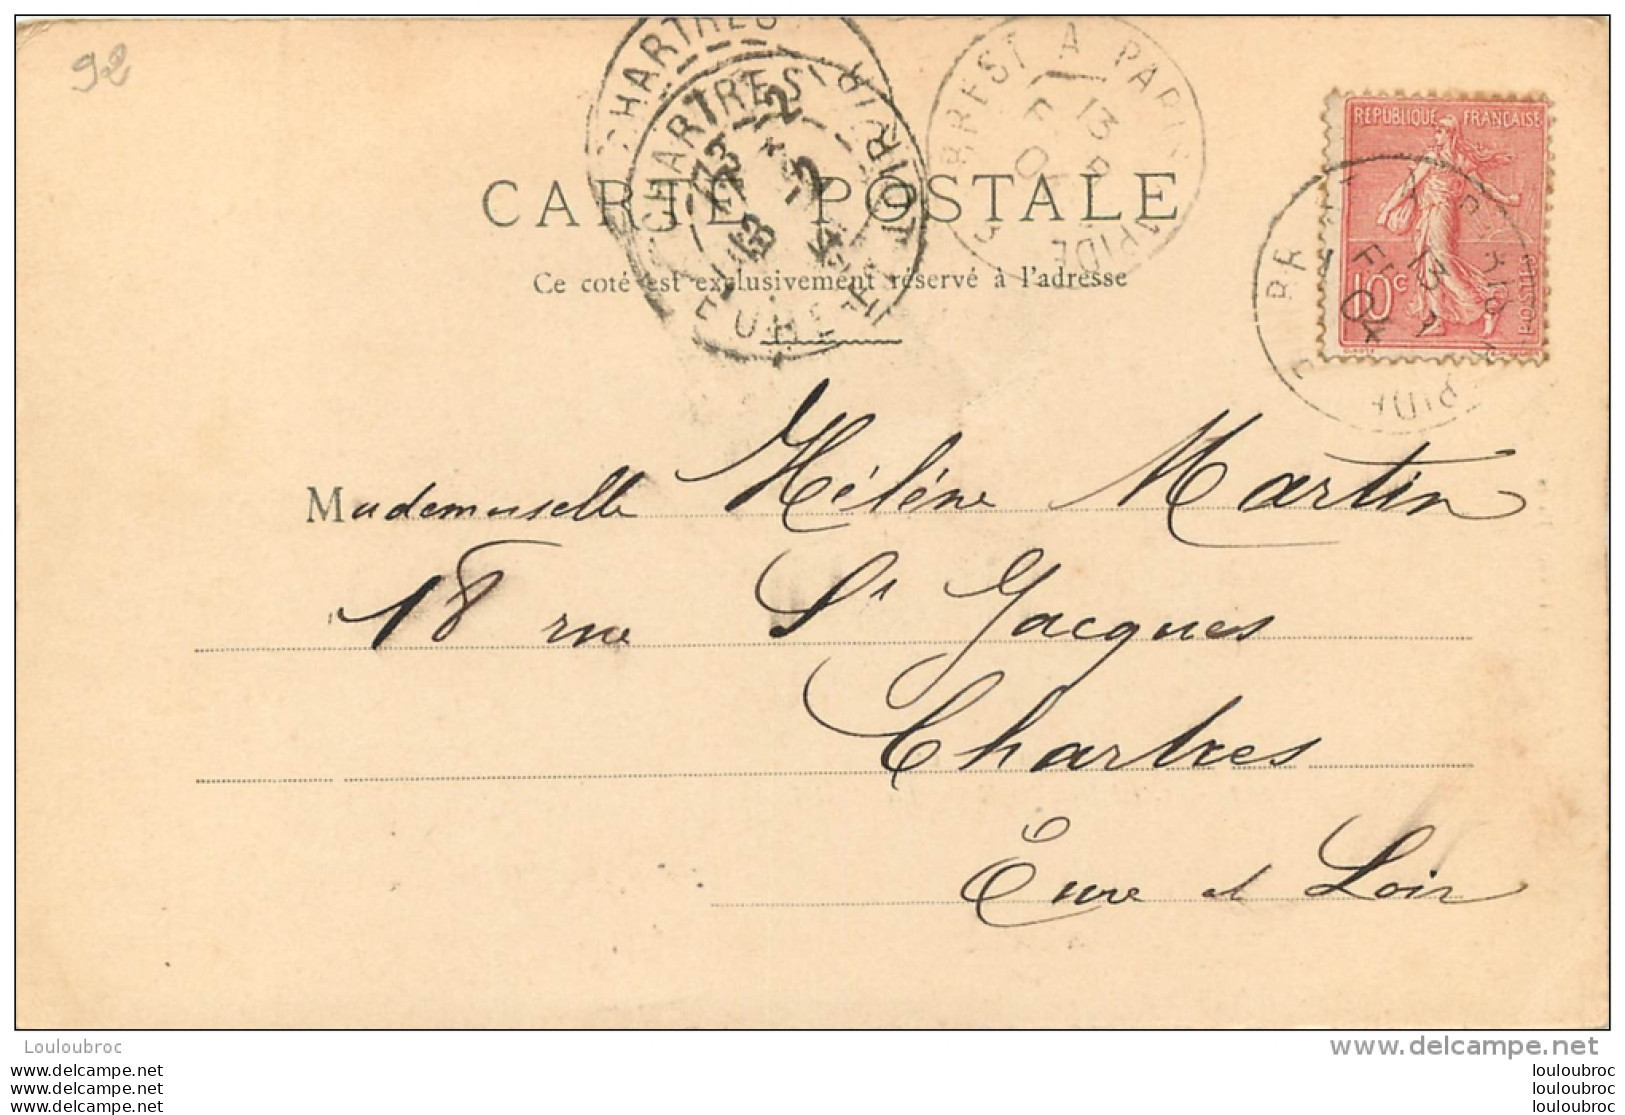 92
CHARTRES
CHARTRES
BREST A PARIS
13
RAPIDE
REPUBLIQUE FRANCAISE
10 C
POSTES
13
04
CARTE POSTALE
Ce coté est exclusivement réservé à l'adresse
Mademoiselle Hélène Martin
18 rue St Jacques
Chartres
Eure et Loir
Louloubroc
www.delcampe.net
louloubroc louloubroc
louloubroc louloubroc
louloubroc louloubroc